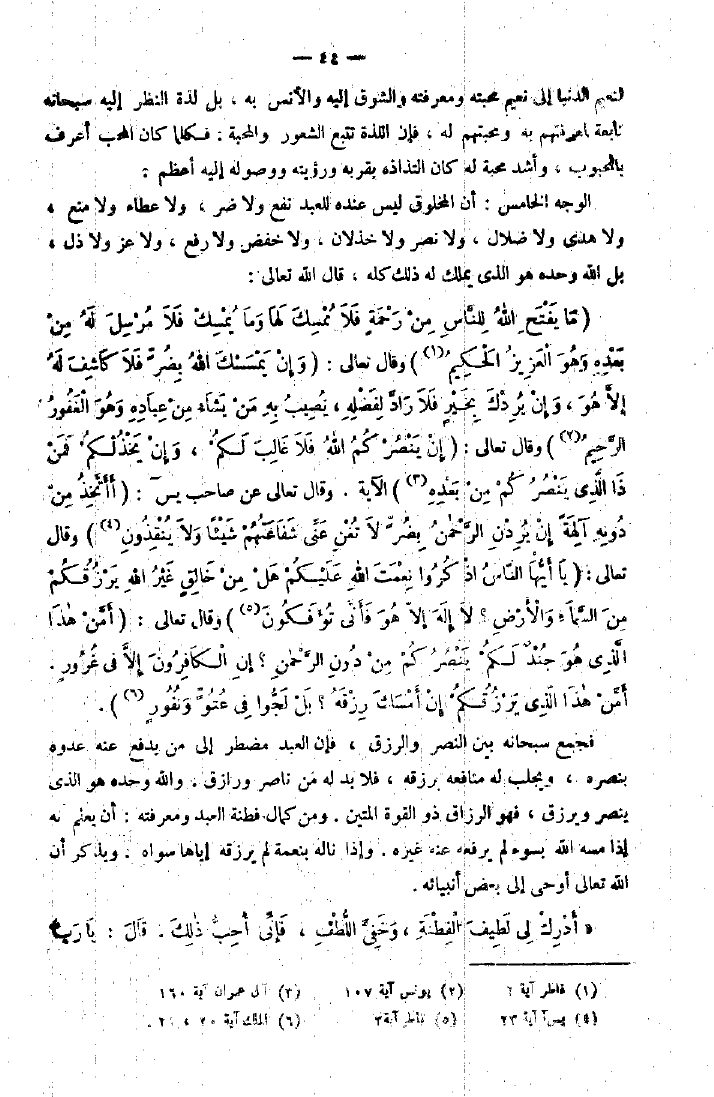 — ٤٤ —
لنعيم الدنيا إلى نعيم محبته ومعرفته والشوق إليه والأنس به ، بل لذة النظر إليه سبحانه
تابعة لمعرفتهم به ومحبتهم له ، فإن اللذة تتبع الشعور والمحبة : فكلما كان المحب أعرف
بالمحبوب ، وأشد محبة له كان التذاذه بقربه ورؤيته ووصوله إليه أعظم :
الوجه الخامس : أن المخلوق ليس عنده للعبد نفع ولا ضر ، ولا عطاء ولا منع ،
ولا هدى ولا ضلال ، ولا نصر ولا خذلان ، ولا خفض ولا رفع ، ولا عز ولا ذل ،
بل الله وحده هو الذى يملك له ذلك كله ، قال الله تعالى :
( مَا يَفْتَحِ اللهُ لِلنَّاسِ مِنْ رَحْمَةٍ فَلَا مُمْسِكَ لَهَا وَمَا يُمْسِكْ فَلَا مُرْسِلَ لَهُ مِنْ
بَعْدِهِ وَهُوَ الْعَزِيزُ الْحَكِيمُ (١) ) وقال تعالى : ( وَإِنْ يَمْسَسْكَ اللهُ بِضُرٍّ فَلَا كَاشِفَ لَهُ
إِلاَّ هُوَ ، وَإِنْ يُرِدْكَ بِخَيْرٍ فَلَا رَادَّ لِفَضْلِهِ ، يُصِيبُ بِهِ مَنْ يَشَاءُ مِنْ عِبَادِهِ وَهُوَ الْغَفُورُ
الرَّحِيمُ (٢) ) وقال تعالى : ( إِنْ يَنْصُرْكُمُ اللهُ فَلَا غَالِبَ لَكُمْ ، وَإِنْ يَخْذُلْكُمْ فَمَنْ
ذَا الَّذِى يَنْصُرُكُمْ مِنْ بَعْدِهِ (٣) ) الآية . وقال تعالى عن صاحب يسٓ : ( أَأَتَّخِذُ مِنْ
دُونِهِ آلِهَةً إِنْ يُرِدْنِ الرَّحْمٰنُ بِضُرٍّ لَا تُغْنِ عَنِّى شَفَاعَتُهُمْ شَيْئًا وَلَا يُنْقِذُونِ (٤) ) وقال
تعالى : ( يَا أَيُّهَا النَّاسُ اذْكُرُوا نِعْمَتَ اللهِ عَلَيْكُمْ هَلْ مِنْ خَالِقٍ غَيْرُ اللهِ يَرْزُقُكُمْ
مِنَ السَّمَاءِ وَالْأَرْضِ ؟ لَا إِلٰهَ إِلاَّ هُوَ فَأَنَّى تُؤْفَكُونَ (٥) ) وقال تعالى : ( أَمَّنْ هٰذَا
الَّذِى هُوَ جُنْدٌ لَكُمْ يَنْصُرُكُمْ مِنْ دُونِ الرَّحْمٰنِ ؟ إِنِ الْكَافِرُونَ إِلاَّ فِى غُرُورٍ .
أَمَّنْ هٰذَا الَّذِى يَرْزُقُكُمْ إِنْ أَمْسَكَ رِزْقَهُ ؟ بَلْ لَجُّوا فِى عُتُوٍّ وَنُفُورٍ (٦) ) .
فجمع سبحانه بين النصر والرزق ، فإن العبد مضطر إلى من يدفع عنه عدوه
بنصره ، ويجلب له منافعه برزقه ، فلا بد له من ناصر ورازق . والله وحده هو الذى
ينصر ويرزق ، فهو الرزاق ذو القوة المتين . ومن كمال فطنة العبد ومعرفته : أن يعلم أنه
إذا مسه الله بسوء لم يرفعه عنه غيره . وإذا ناله بنعمة لم يرزقه إياها سواه . ويذكر أن
الله تعالى أوحى إلى بعض أنبيائه .
« أَدْرِكْ لِى لَطِيفَ الْفِطْنَةِ ، وَخَفِىَّ اللُّطْفِ ، فَإِنِّى أُحِبُّ ذٰلِكَ . قَالَ : يَا رَبِّ
(١) فاطر آية ٢ (٢) يونس آية ١٠٧ (٣) آل عمران آية ١٦٠
(٤) يسٓ آية ٢٣ (٥) فاطر آية ٣ (٦) الملك آية ٢٠ ، ٢١ .